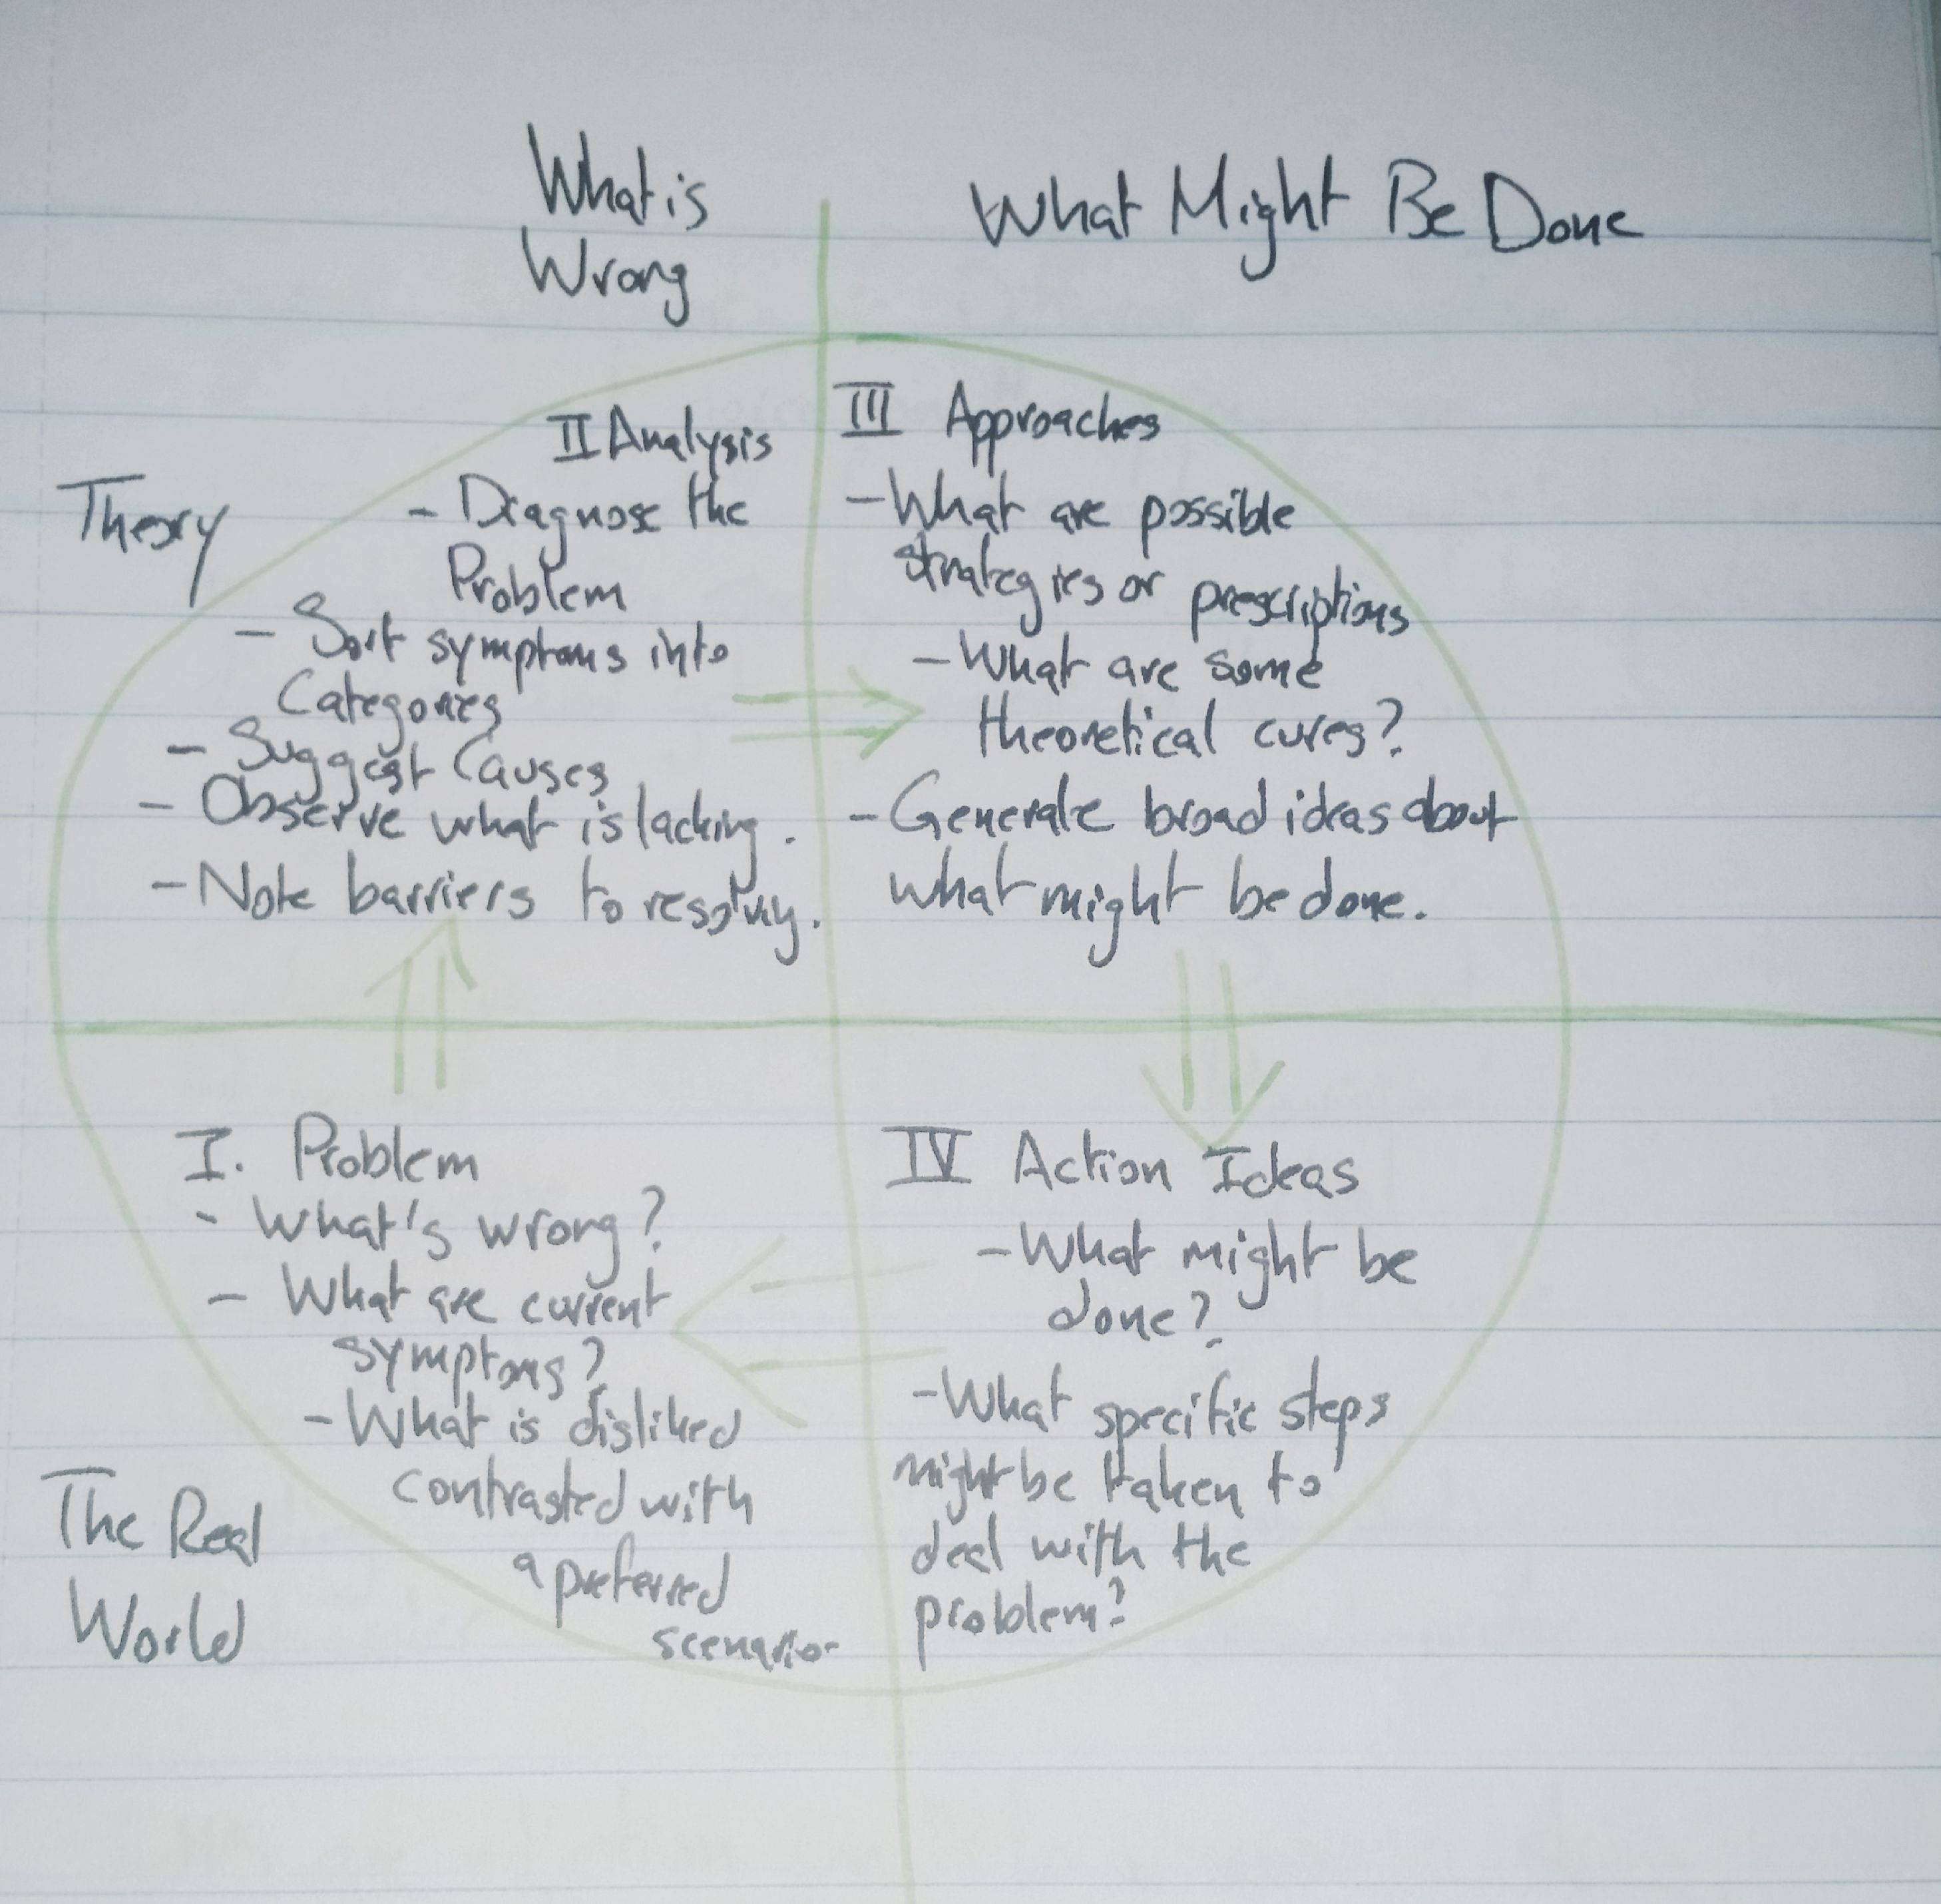 What is
Wrong
What Might Be Done
Theory
II Analysis
- Diagnose the
Problem
- Sort symptoms into
Categories
- Suggest Causes
- Observe what is lacking.
- Note barriers to resolving.
III Approaches
- What are possible
strategies or prescriptions
- What are some
theoretical cures?
- Generate broad ideas about
what might be done.
The Real
World
I. Problem
- What's wrong?
- What are current
symptoms?
- What is disliked
contrasted with
a preferred
scenario
IV Action Ideas
- What might be
done?
- What specific steps
might be taken to
deal with the
problem?